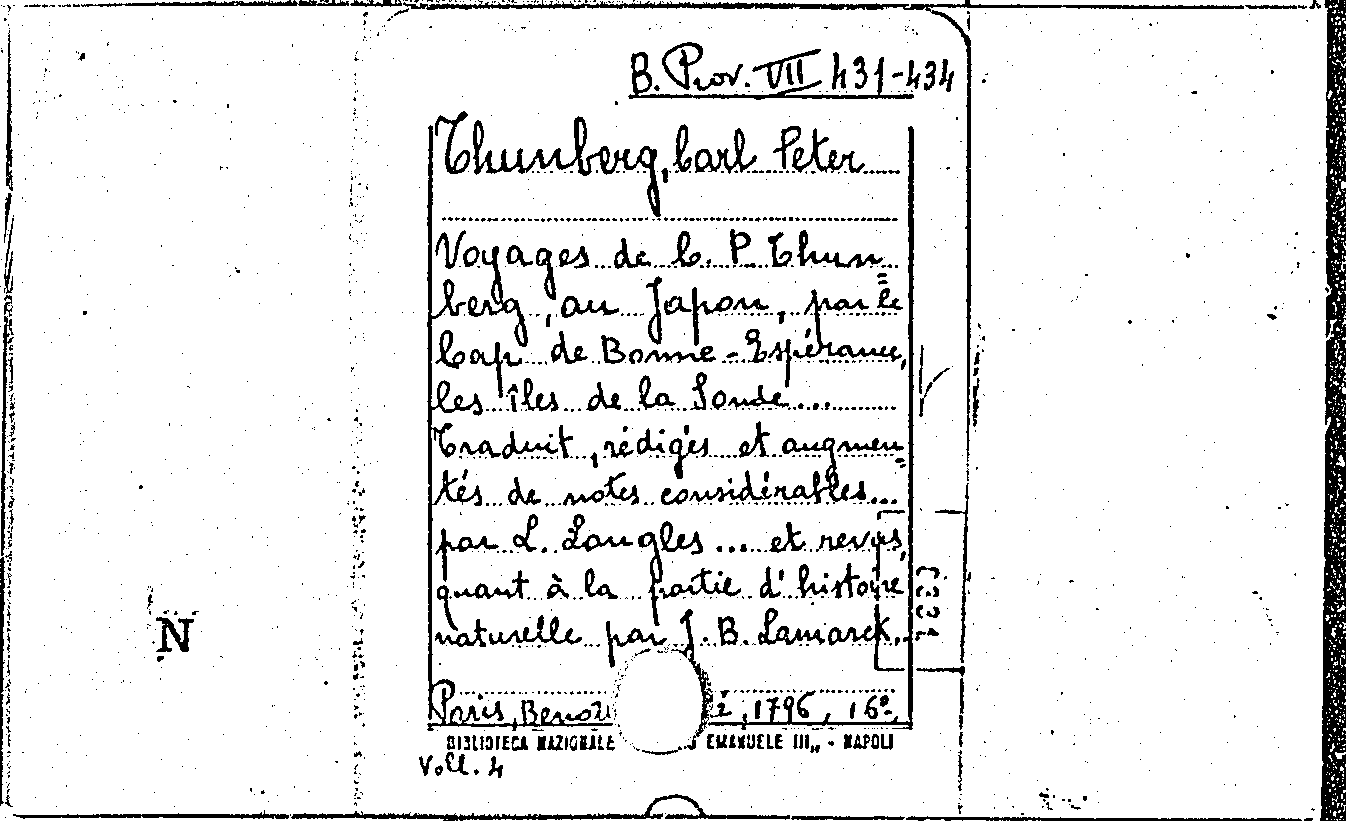 B. Prov. VII 431-434
Thunberg, Carl Peter
Voyages de C. P. Thun=
berg, au Japon, par le
Cap de Bonne-Espérance,
les îles de la Sonde...
Traduit, rédigés et augmen=
tés de notes considérables...
par L. Langles ... et revus,
quant à la partie d'histoire
naturelle par J. B. Lamarck..
Paris, 1796, 16º,
BIBLIOTECA NAZIONALE EMANUELE III„ - NAPOLI
Voll. 4
N